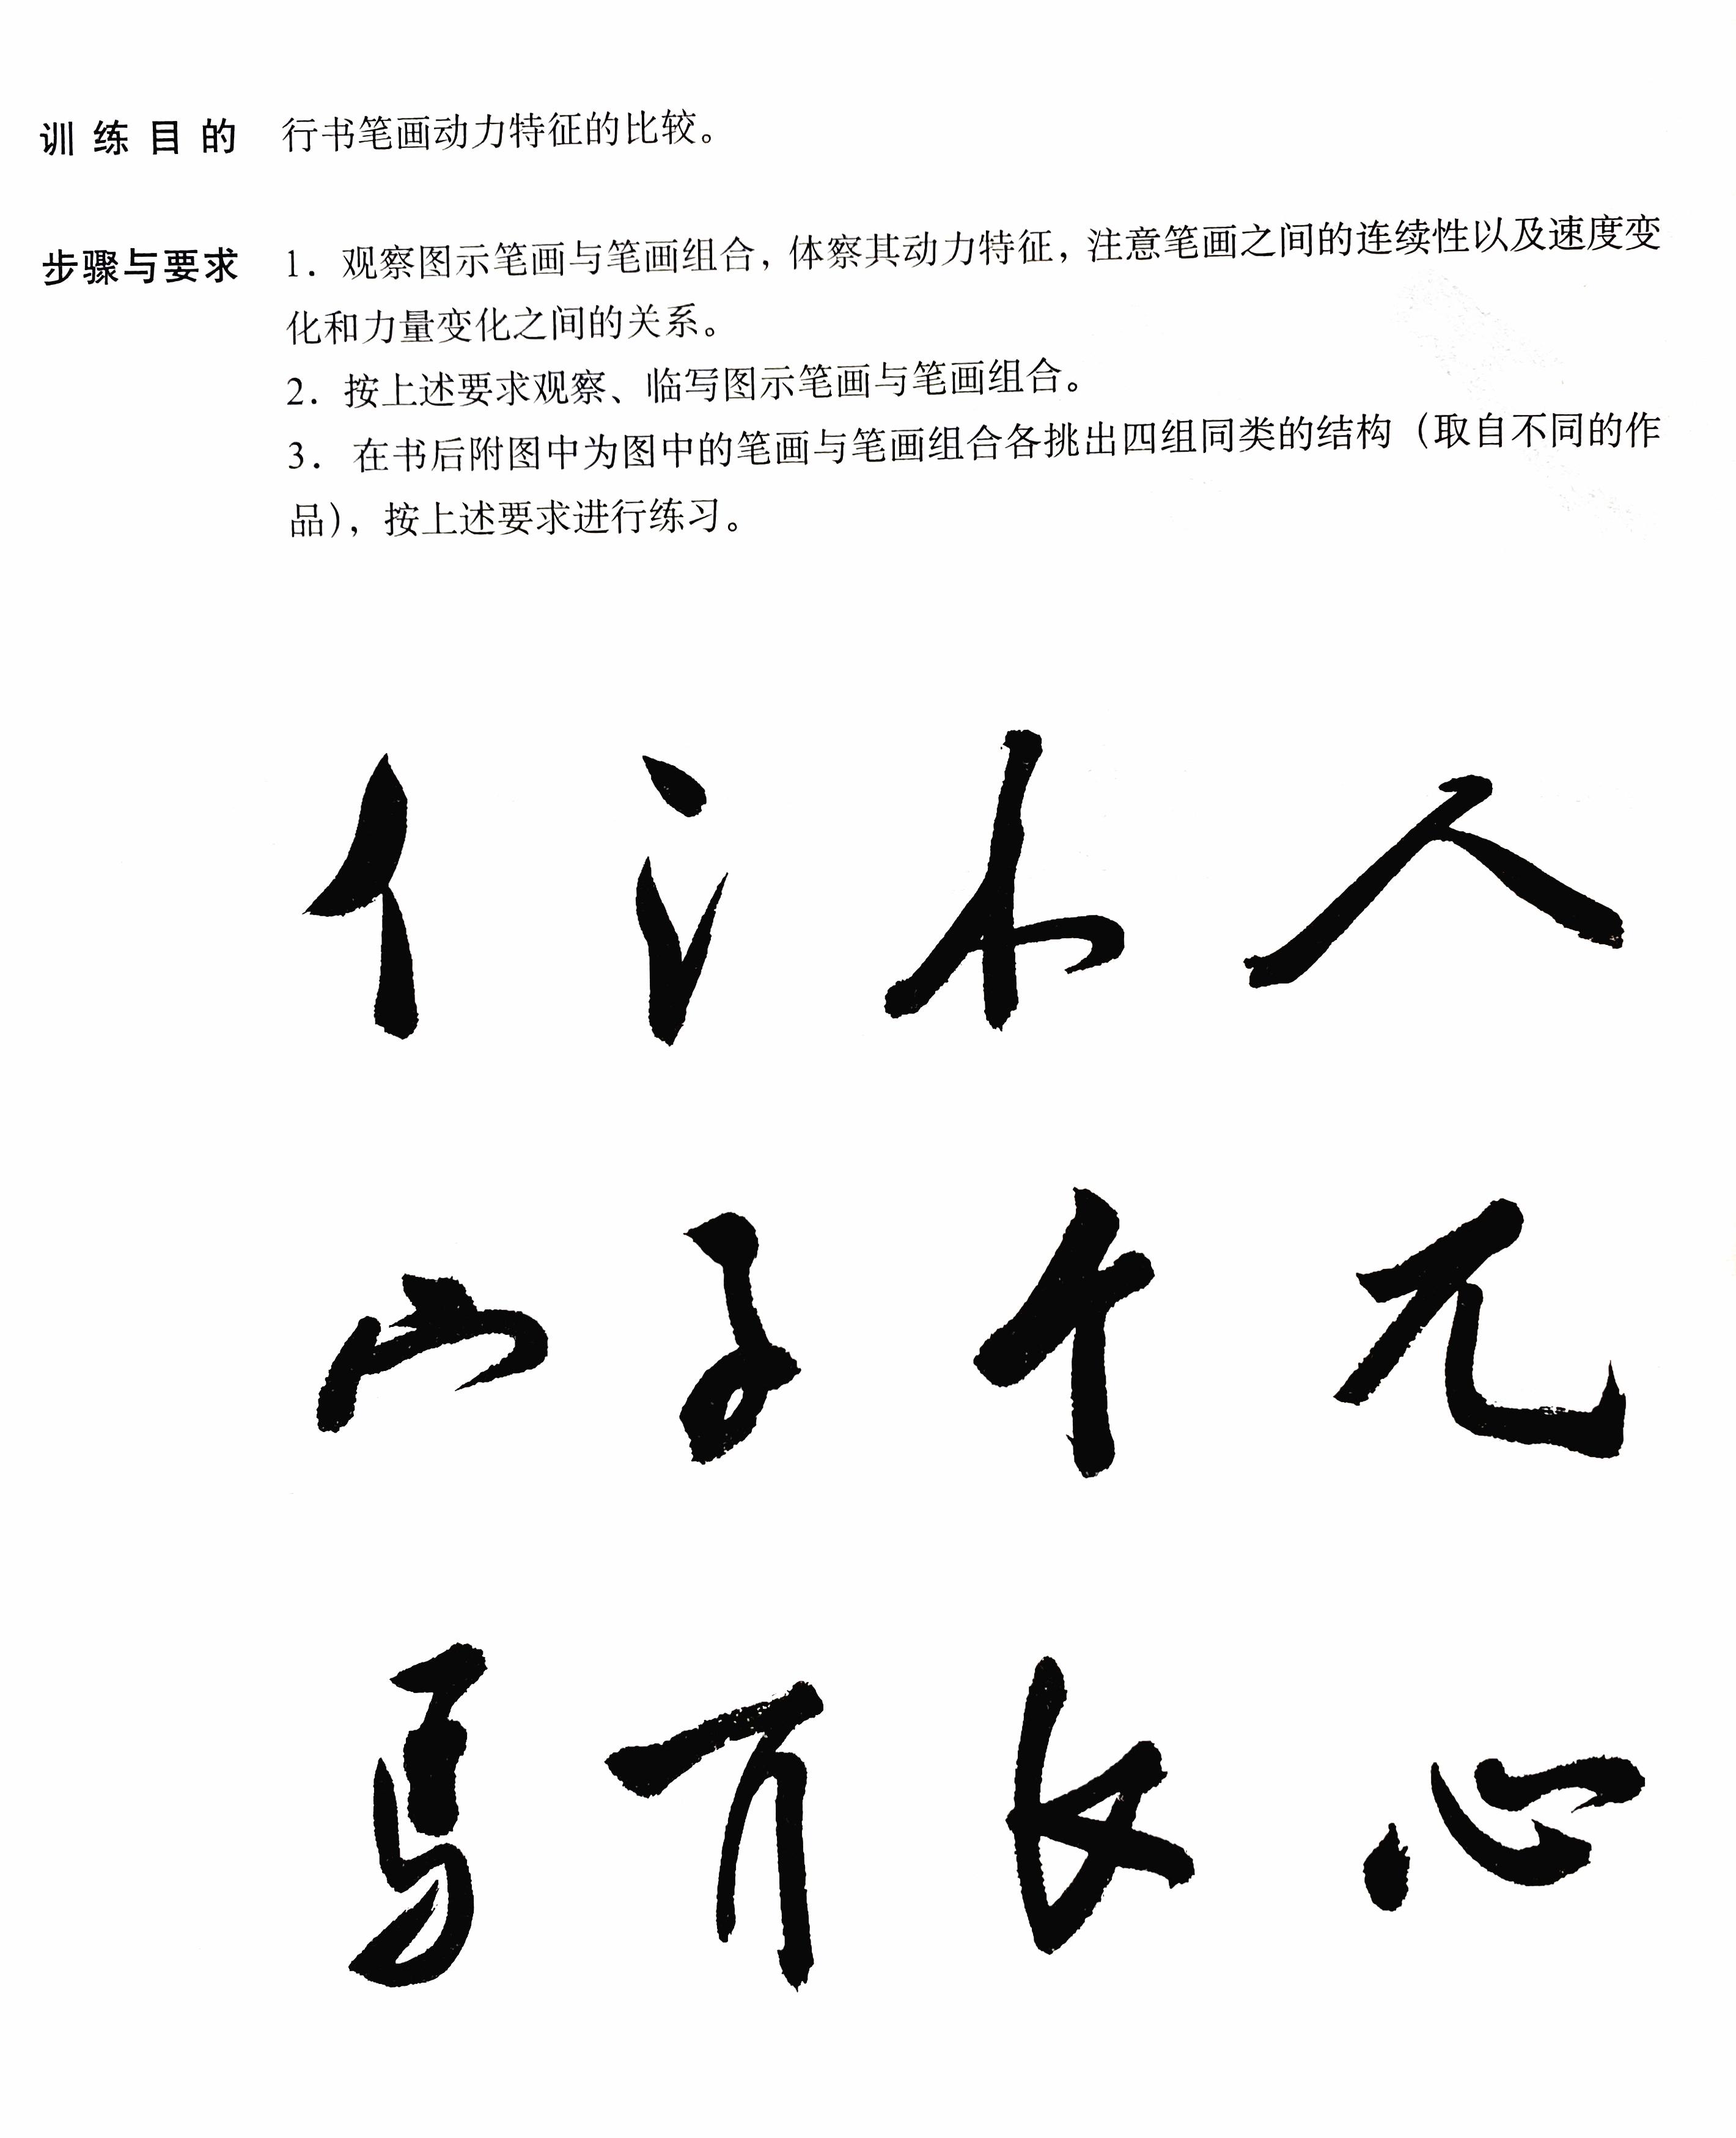 训练目的 行书笔画动力特征的比较。
步骤与要求 1. 观察图示笔画与笔画组合，体察其动力特征，注意笔画之间的连续性以及速度变
化和力量变化之间的关系。
2. 按上述要求观察、临写图示笔画与笔画组合。
3. 在书后附图中为图中的笔画与笔画组合各挑出四组同类的结构（取自不同的作
品），按上述要求进行练习。
亻 氵 人
宀 子
心